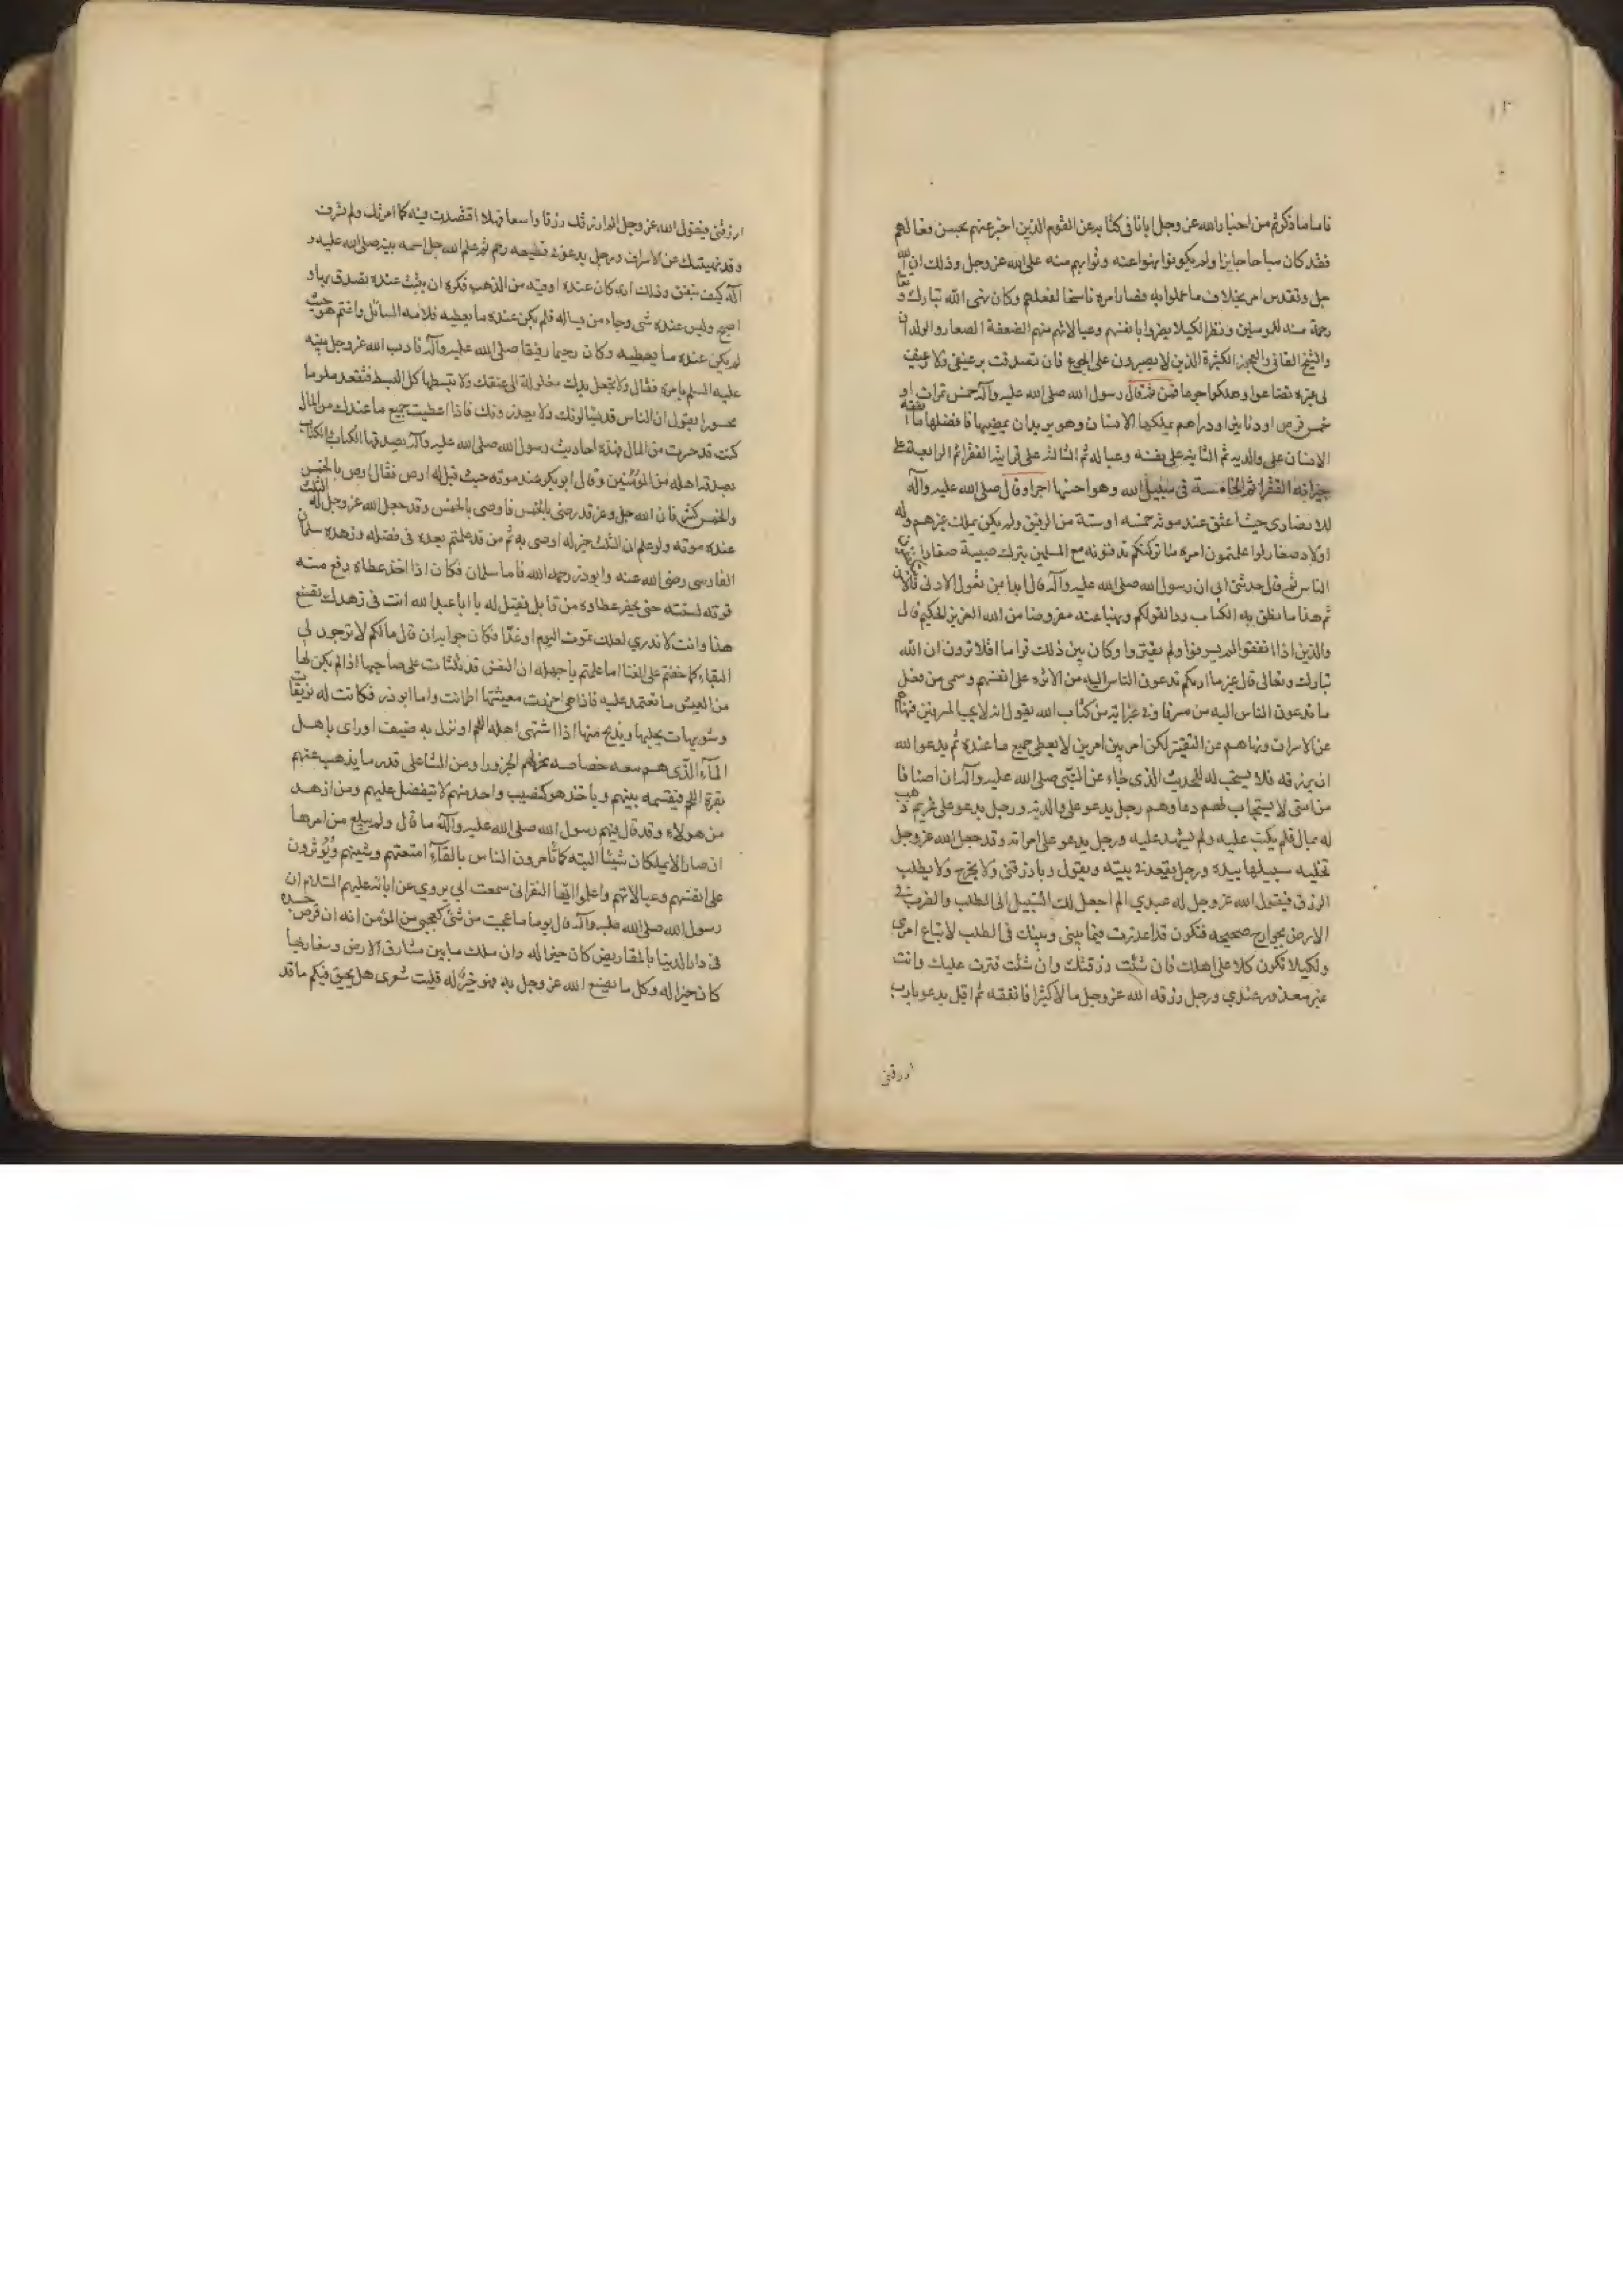 ١٣
فاما ما ذكرتم من اخبار الله عز وجل ايانا في كتابه عن القوم الذين اخبر عنهم بحسن فعالهم
فقد كان مباحا جايزا ولم يكونوا نهوا عنه وثوابهم منه على الله عز وجل وذلك ان الله
جل وتقدس امر بخلاف ما عملوا به فصار امره ناسخا لفعلهم وكان نهى الله تبارك و تعالى
رحمة منه للمومنين ونظرا لكيلا يضروا بانفسهم وعيالاتهم منهم الضعفة الصغار والولدان
والشيخ الفاني والعجوز الكبيرة الذين لا يصبرون على الجوع فان تصدقت برغيفي ولا رغيف
لي غيره ضاعوا وهلكوا جوعا فمن ثم قال رسول الله صلى الله عليه وآله خمس تمرات او
خمس قرص او دنانير او دراهم يملكها الانسان وهو يريد ان يمضيها فافضلها ما انفقه
الانسان على والديه ثم الثانية على نفسه وعياله ثم الثالثة على قرابته الفقرا ثم الرابعة على
جيرانه الفقرا ثم الخامسة في سبيل الله وهو اخسها اجرا وقال صلى الله عليه وآله
للانصاري حيث اعتق عند موته خمسه او ستة من الرقيق ولم يكن يملك غيرهم وله
اولاد صغار لو اعلمتموني امره ما تركتكم تدفنونه مع المسلمين يترك صبية صغارا يتكففون
الناس ثم قال حدثني ابي ان رسول الله صلى الله عليه وآله قال ابدا بمن تعول الادنى فالادنى
ثم هذا ما نطق به الكتاب ردا لقولكم ونهيا عنه مفروضا من الله العزيز الحكيم قال
والذين اذا انفقوا لم يسرفوا ولم يقتروا وكان بين ذلك قواما افلا ترون ان الله
تبارك وتعالى قال غير ما اريكم تدعون الناس اليه من الاثره على انفسهم وسمى من فعل
ما تدعون الناس اليه مسرفا وفي غير آية من كتاب الله يقول انه لا يحب المسرفين فنهاهم
عن الاسراف ونهاهم عن التقتير لكن امر بين امرين لا يعطي جميع ما عنده ثم يدعوا الله
ان يرزقه فلا يستجب له للحديث الذي جاء عن النبي صلى الله عليه وآله ان اصنافا
من امتي لا يستجاب لهم دعاوهم رجل يدعو على والديه ورجل يدعو على غريم ذهب
له بمال فلم يكتب عليه ولم يشهد عليه ورجل يدعو على امراته وقد جعل الله عز وجل
تخليه سبيلها بيده ورجل يقعد في بيته ويقول رب ارزقني ولا يخرج ولا يطلب
الرزق فيقول الله عز وجل له عبدي الم اجعل لك السبيل الى الطلب والضرب في
الارض بجوارح صحيحه فتكون قد اعذرت فيما بيني وبينك في الطلب لاتباع امري
ولكيلا تكون كلا على اهلك فان شئت رزقتك وان شئت قترت عليك وانت
غير معذور عندي ورجل رزقه الله عز وجل مالا كثيرا فانفقه ثم اقبل يدعو يا رب
ارزقني
ارزقني فيقول الله عز وجل الم ارزقك رزقا واسعا فهلا اقتصدت فيه كما امرتك ولم تسرف
وقد نهيتك عن الاسراف ورجل يدعو في قطيعه رحم ثم علم الله جل اسمه نبيه صلى الله عليه و
آله كيف ينفق وذلك انه كان عنده اوقيه من الذهب فكره ان يبيت عنده تصدق بها و
اصبح وليس عنده شى وجاءه من يساله فلم يكن عنده ما يعطيه فلامه السائل واغتم هو حيث
لم يكن عنده ما يعطيه وكان رحيما رفيقا صلى الله عليه وآله فادب الله عز وجل نبيه
عليه السلم بامره فقال ولا تجعل يدك مغلولة الى عنقك ولا تبسطها كل البسط فتقعد ملوما
محسورا يقول ان الناس قد يسالونك ولا يعذرونك فاذا اعطيت جميع ما عندك من المال
كنت قد حسرت من المال فهذه احاديث رسول الله صلى الله عليه وآله يصدقها الكتاب والكتاب
يصدقه اهله من المؤمنين وقال ابو بكر عند موته حيث قيل له اوص فقال اوص بالخمس
والخمس كثير فان الله جل وعز قد رضى بالخمس فاوصى بالخمس وقد جعل الله عز وجل له الثلث
عنده موته ولو علم ان الثلث خير له اوصى به ثم من قد علمتم بعده في فضله وزهده سلمان
الفارسي رضى الله عنه وابوذر رحمه الله فاما سلمان فكان اذا اخذ عطاه رفع منه
قوته لسنته حتى يحضر عطاوه من قابل فقيل له يا ابا عبد الله انت في زهدك تصنع
هذا وانت لا تدري لعلك تموت اليوم او غدا فكان جوابه ان قال ما لكم لا ترجون لي
البقاء كما خفتم على الفنا اما علمتم يا جهله ان النفس قد تلتاث على صاحبها اذا لم يكن لها
من العيش ما تعتمد عليه فاذا هي احرزت معيشتها اطمانت واما ابوذر فكانت له نويقات
وشويهات يحلبها ويذبح منها اذا اشتهى اهله اللحم او نزل به ضيف او راى باهل
المآء الذى هم معه خصاصه نحر لهم الجزور او من الشا على قدر ما يذهب عنهم
بقرم اللحم فيقسمه بينهم وياخذ هو كنصيب واحد منهم لا يتفضل عليهم ومن ازهد
من هولاء وقد قال فيهم رسول الله صلى الله عليه وآله ما قال ولم يبلغ من امرهما
ان صارا لا يملكان شيئا البته كما تأمرون الناس بالقآء امتعتهم وشيئهم ويؤثرون
على انفسهم وعيالاتهم واعلموا ايها النفر اني سمعت ابي يروي عن ابائه عليهم السلام ان
رسول الله صلى الله عليه وآله قال يوما ما عجبت من شئ كعجبي من المؤمن انه ان قرض جسده
في دار الدنيا بالمقاريض كان خيرا له وان ملك ما بين مشارق الارض ومغاربها
كان خيرا له وكل ما يصنع الله عز وجل به فهو خير له فليت شعرى هل يحيق فيكم ما قد